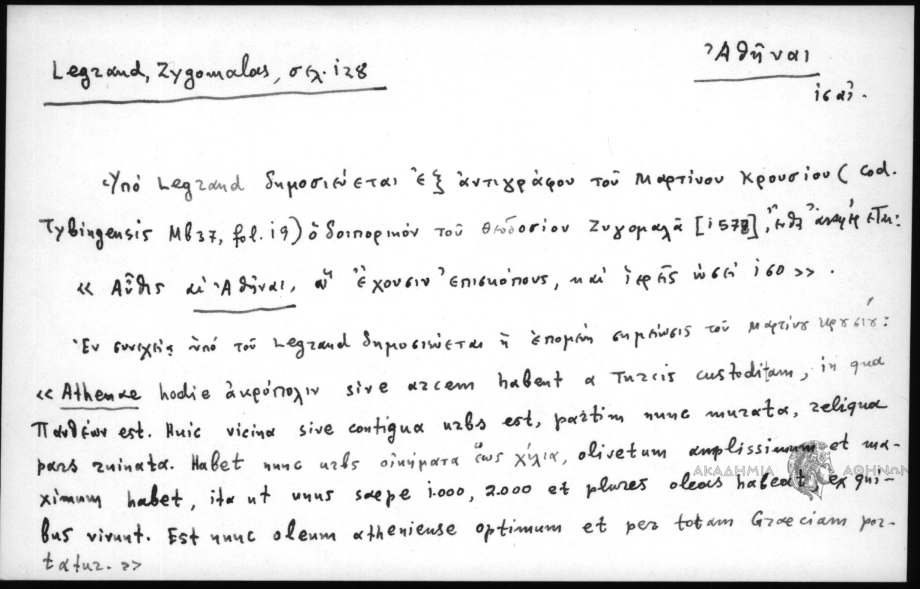 Legrand, Zygomalas, σελ. 128
Ἀθῆναι
ις αἰ.
Ὑπό Legrand δημοσιεύεται ἐξ ἀντιγράφου τοῦ Μαρτίνου Κρουσίου (cod.
Tybingensis Mb37, fol. 19) ὁδοιπορικόν τοῦ Θεοδοσίου Ζυγομαλᾶ [1578],
« Αὖθις αἱ Ἀθῆναι, ἔχουσιν ἐπισκόπους, καί ἱερεῖς ὡσεί 150 » .
Ἐν συνεχείᾳ ὑπό τοῦ Legrand δημοσιεύεται ἡ ἑπομένη σημείωσις τοῦ Μαρτίνου Κρουσίου:
« Athenae hodie ἀκρόπολιν sive arcem habent a Turcis custoditam, in qua
Πανθέων est. Huic vicina sive contigua urbs est, partim nunc murata, reliqua
pars ruinata. Habet nunc urbs οἰκήματα ἕως χίλια, olivetum amplissimum et ma-
ximum habet, ita ut unus saepe 1.000, 2.000 et plures oleas habeat, ex qui-
bus vivunt. Est nunc oleum atheniense optimum et per totam Graeciam por-
tatur. »
ΑΚΑΔΗΜΙΑ ΑΘΗΝΩΝ